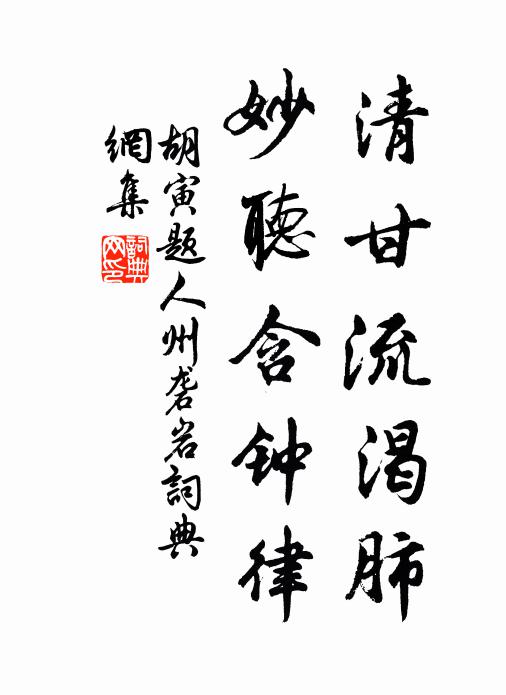 清甘流渴肺
妙聽含钟律
胡寅题人州砻岩詞典
網集
詞典網印